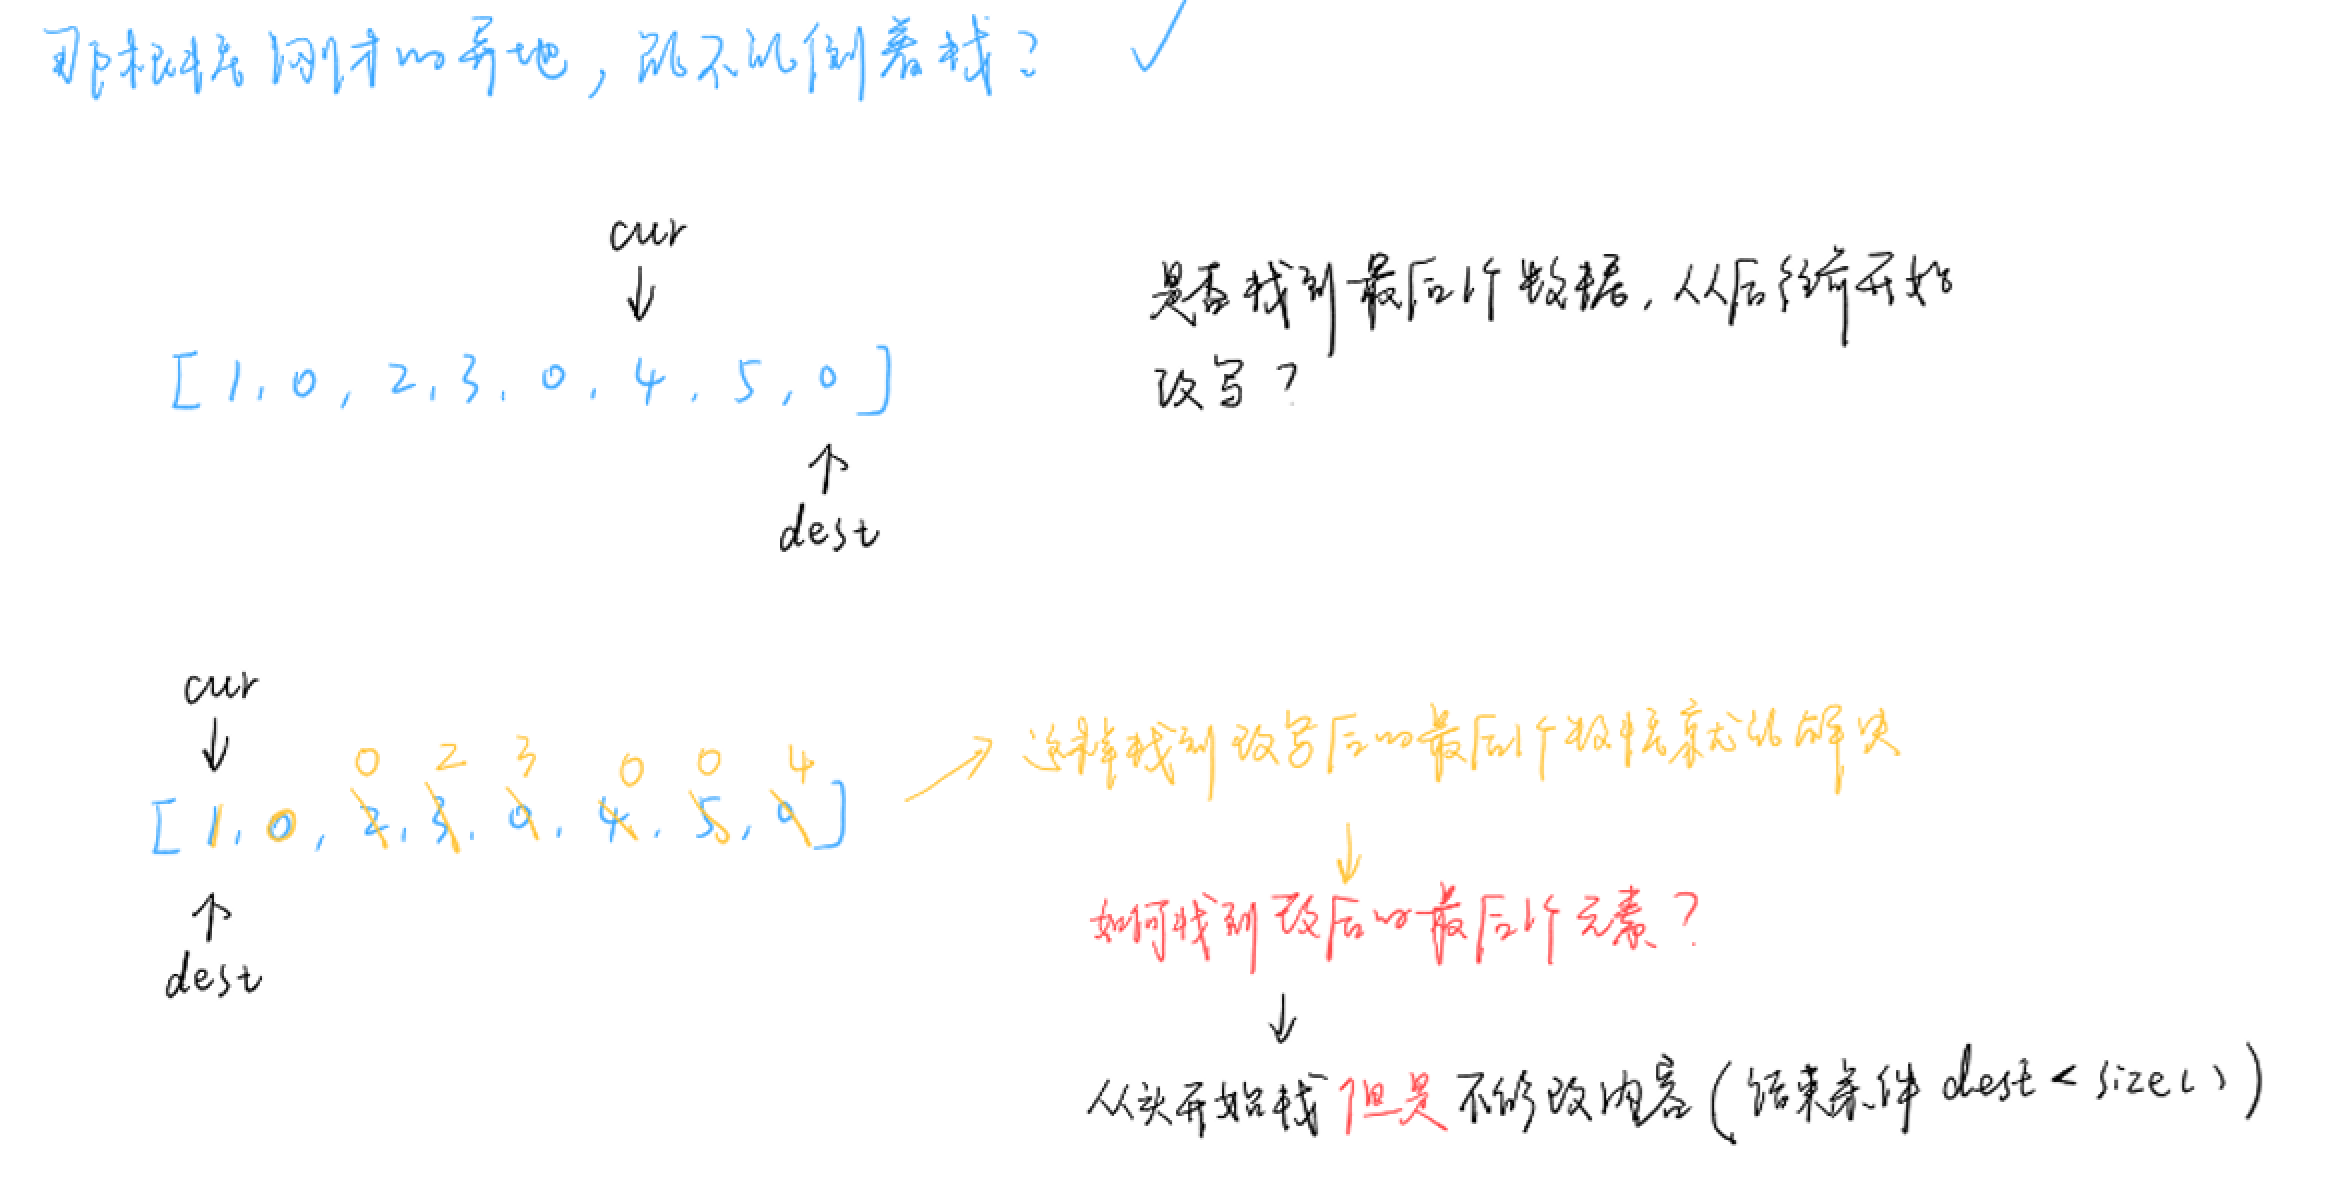 那根据刚才的异地，能不能倒着找？ ✓
cur
↓
[1, 0, 2, 3, 0, 4, 5, 0]
↑
dest
是否找到最后1个数据，从后往前开始
改写？
cur
↓
0 2 3 0 0 4
[1, 0, 2, 3, 0, 4, 5, 0]
↑
dest
→ 这样找到改写后的最后1个数据就能解决
↓
如何找到改后的最后1个元素？
↓
从头开始找但是不修改内容(结束条件 dest < size())